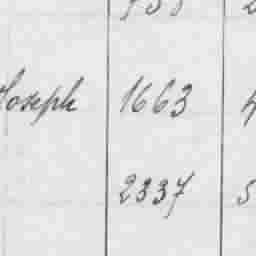 Joseph 1663 4
2337 5